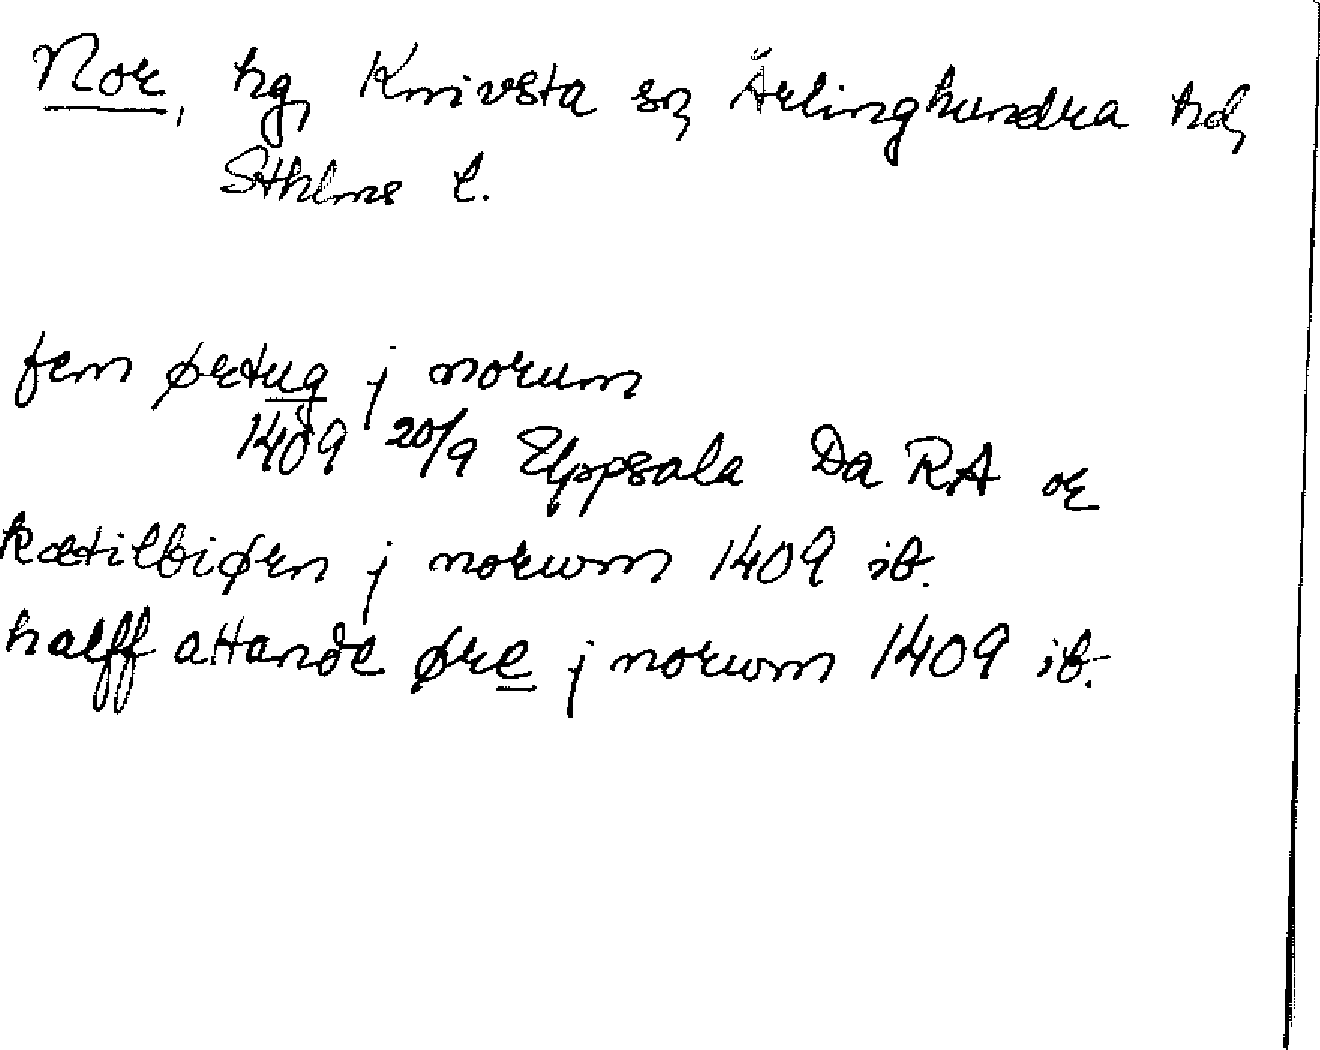 Nor, hg, Knivsta sn, Ärlinghundra hd,
Sthlms l.
fem ørtug j norum
1409 20/9 Uppsala Da RA or
kætilbiørn j norwm 1409 ib.
halff attande øre j norwm 1409 ib.